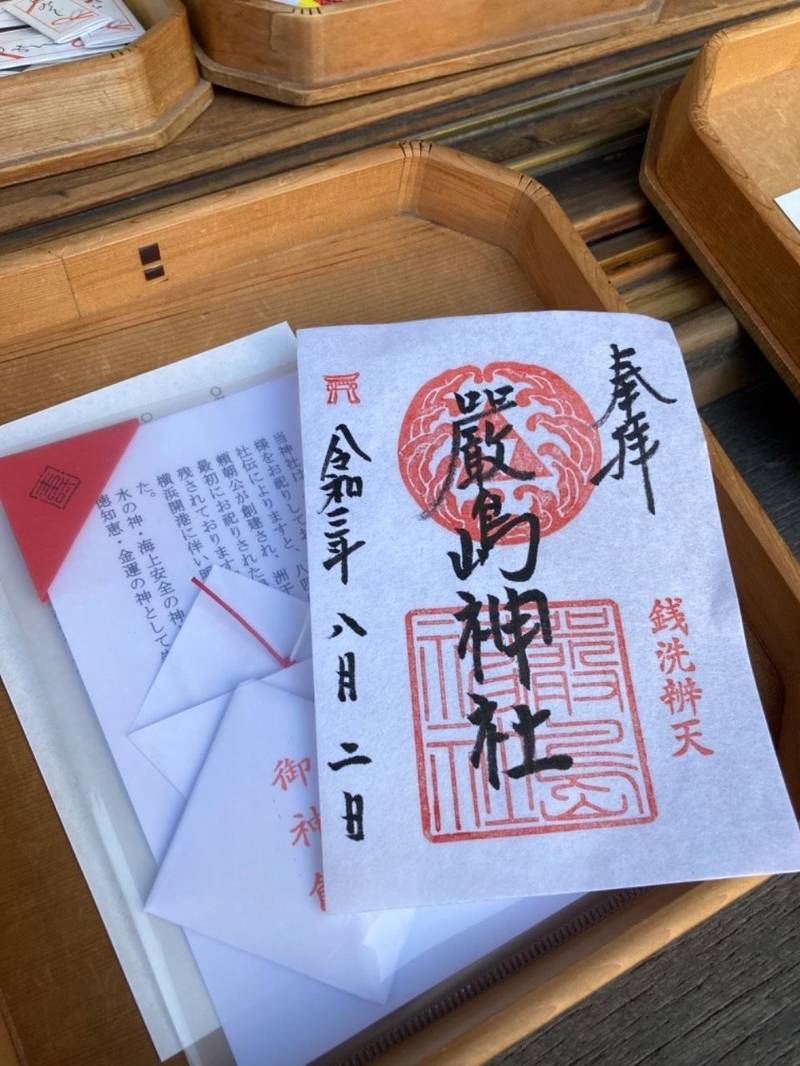 奉拝
銭洗辨天
嚴島神社
嚴島
神社
令和三年 八月 二日
当神社は
様をお祀りしてお
社伝によりますと、洲干
頼朝公が創建され、
最初にお祀りされた
残されております
横浜開港に伴い明
た。
水の神・海上安全の神
徳知恵・金運の神として
御神